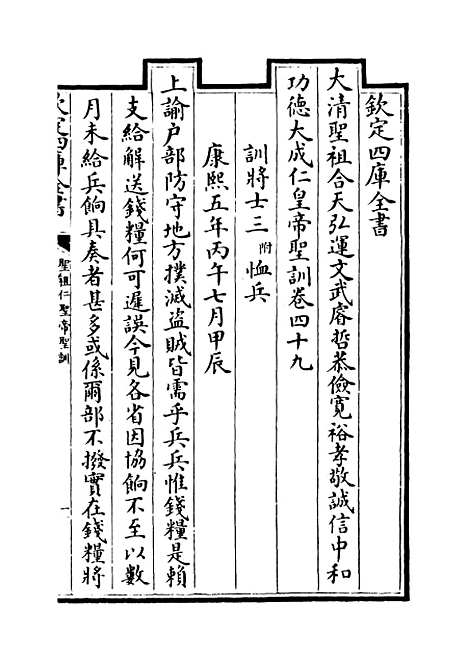 欽定四庫全書
大清聖祖合天弘運文武睿哲恭儉寛裕孝敬誠信中和
功德大成仁皇帝聖訓卷四十九
訓將士三附恤兵
康熙五年丙午七月甲辰
上諭户部防守地方撲滅盜賊皆需乎兵兵惟錢糧是賴
支給解送錢糧何可遲誤今見各省因協餉不至以數
月未給兵餉具奏者甚多或係爾部不撥實在錢糧將
欽定四庫全書
聖祖仁皇帝聖訓
一